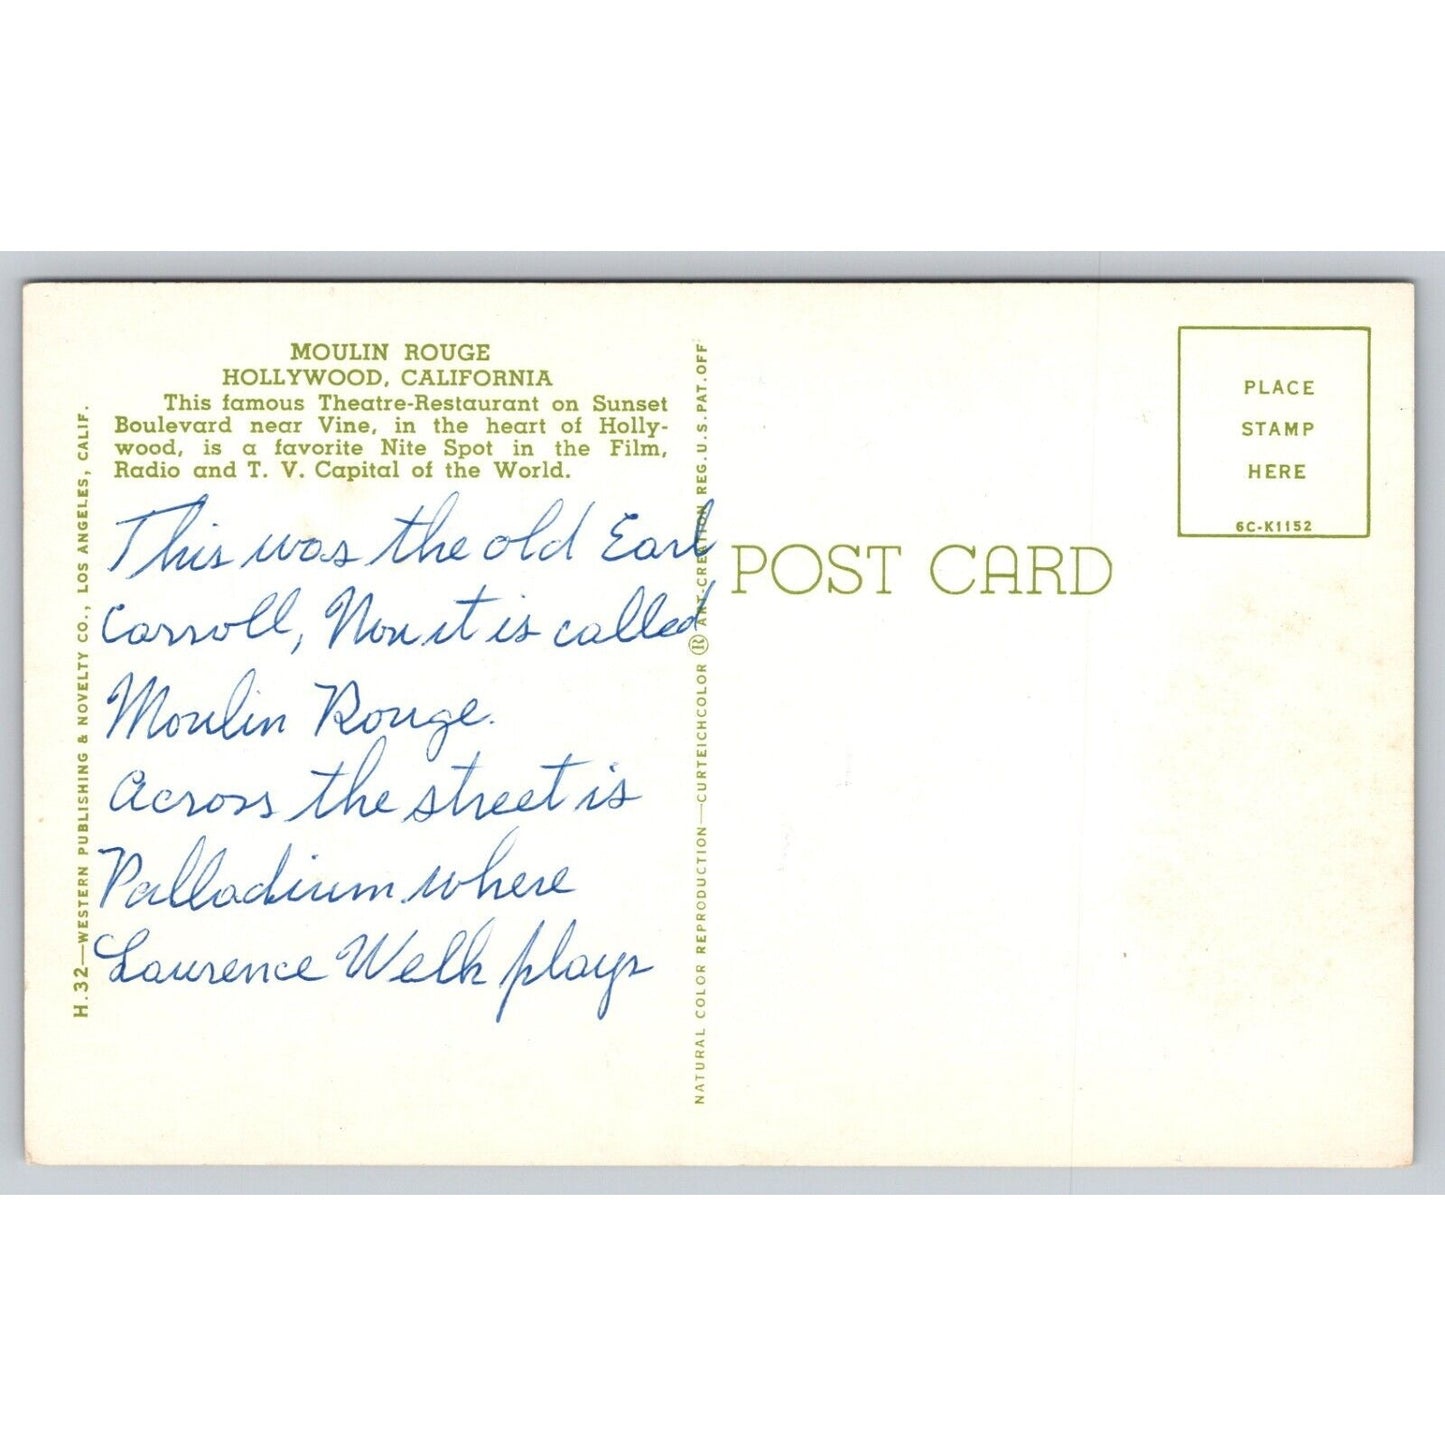 MOULIN ROUGE
HOLLYWOOD, CALIFORNIA
This famous Theatre-Restaurant on Sunset
Boulevard near Vine, in the heart of Holly-
wood, is a favorite Nite Spot in the Film,
Radio and T. V. Capital of the World.
This was the old Earl
Carroll, Now it is called
Moulin Rouge.
Across the street is
Palladium where
Laurence Welk plays
H.32—WESTERN PUBLISHING & NOVELTY CO., LOS ANGELES, CALIF.
NATURAL COLOR REPRODUCTION—CURTEICHCOLOR ® ART-CREATION REG. U.S. PAT. OFF
POST CARD
PLACE
STAMP
HERE
6C-K1152